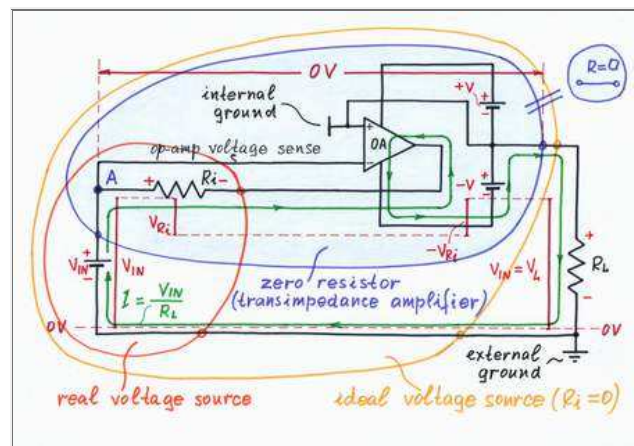 0V
R=0
internal
ground
+V
+
-
+
-
OA
op-amp voltage sense
A
+
Ri
-
-V
+
-
VRi
-VRi
VIN
+
-
VIN
VIN = VL
+
RL
-
zero resistor
(transimpedance amplifier)
I = VIN
RL
0V
0V
external
ground
real voltage source
ideal voltage source (Ri=0)